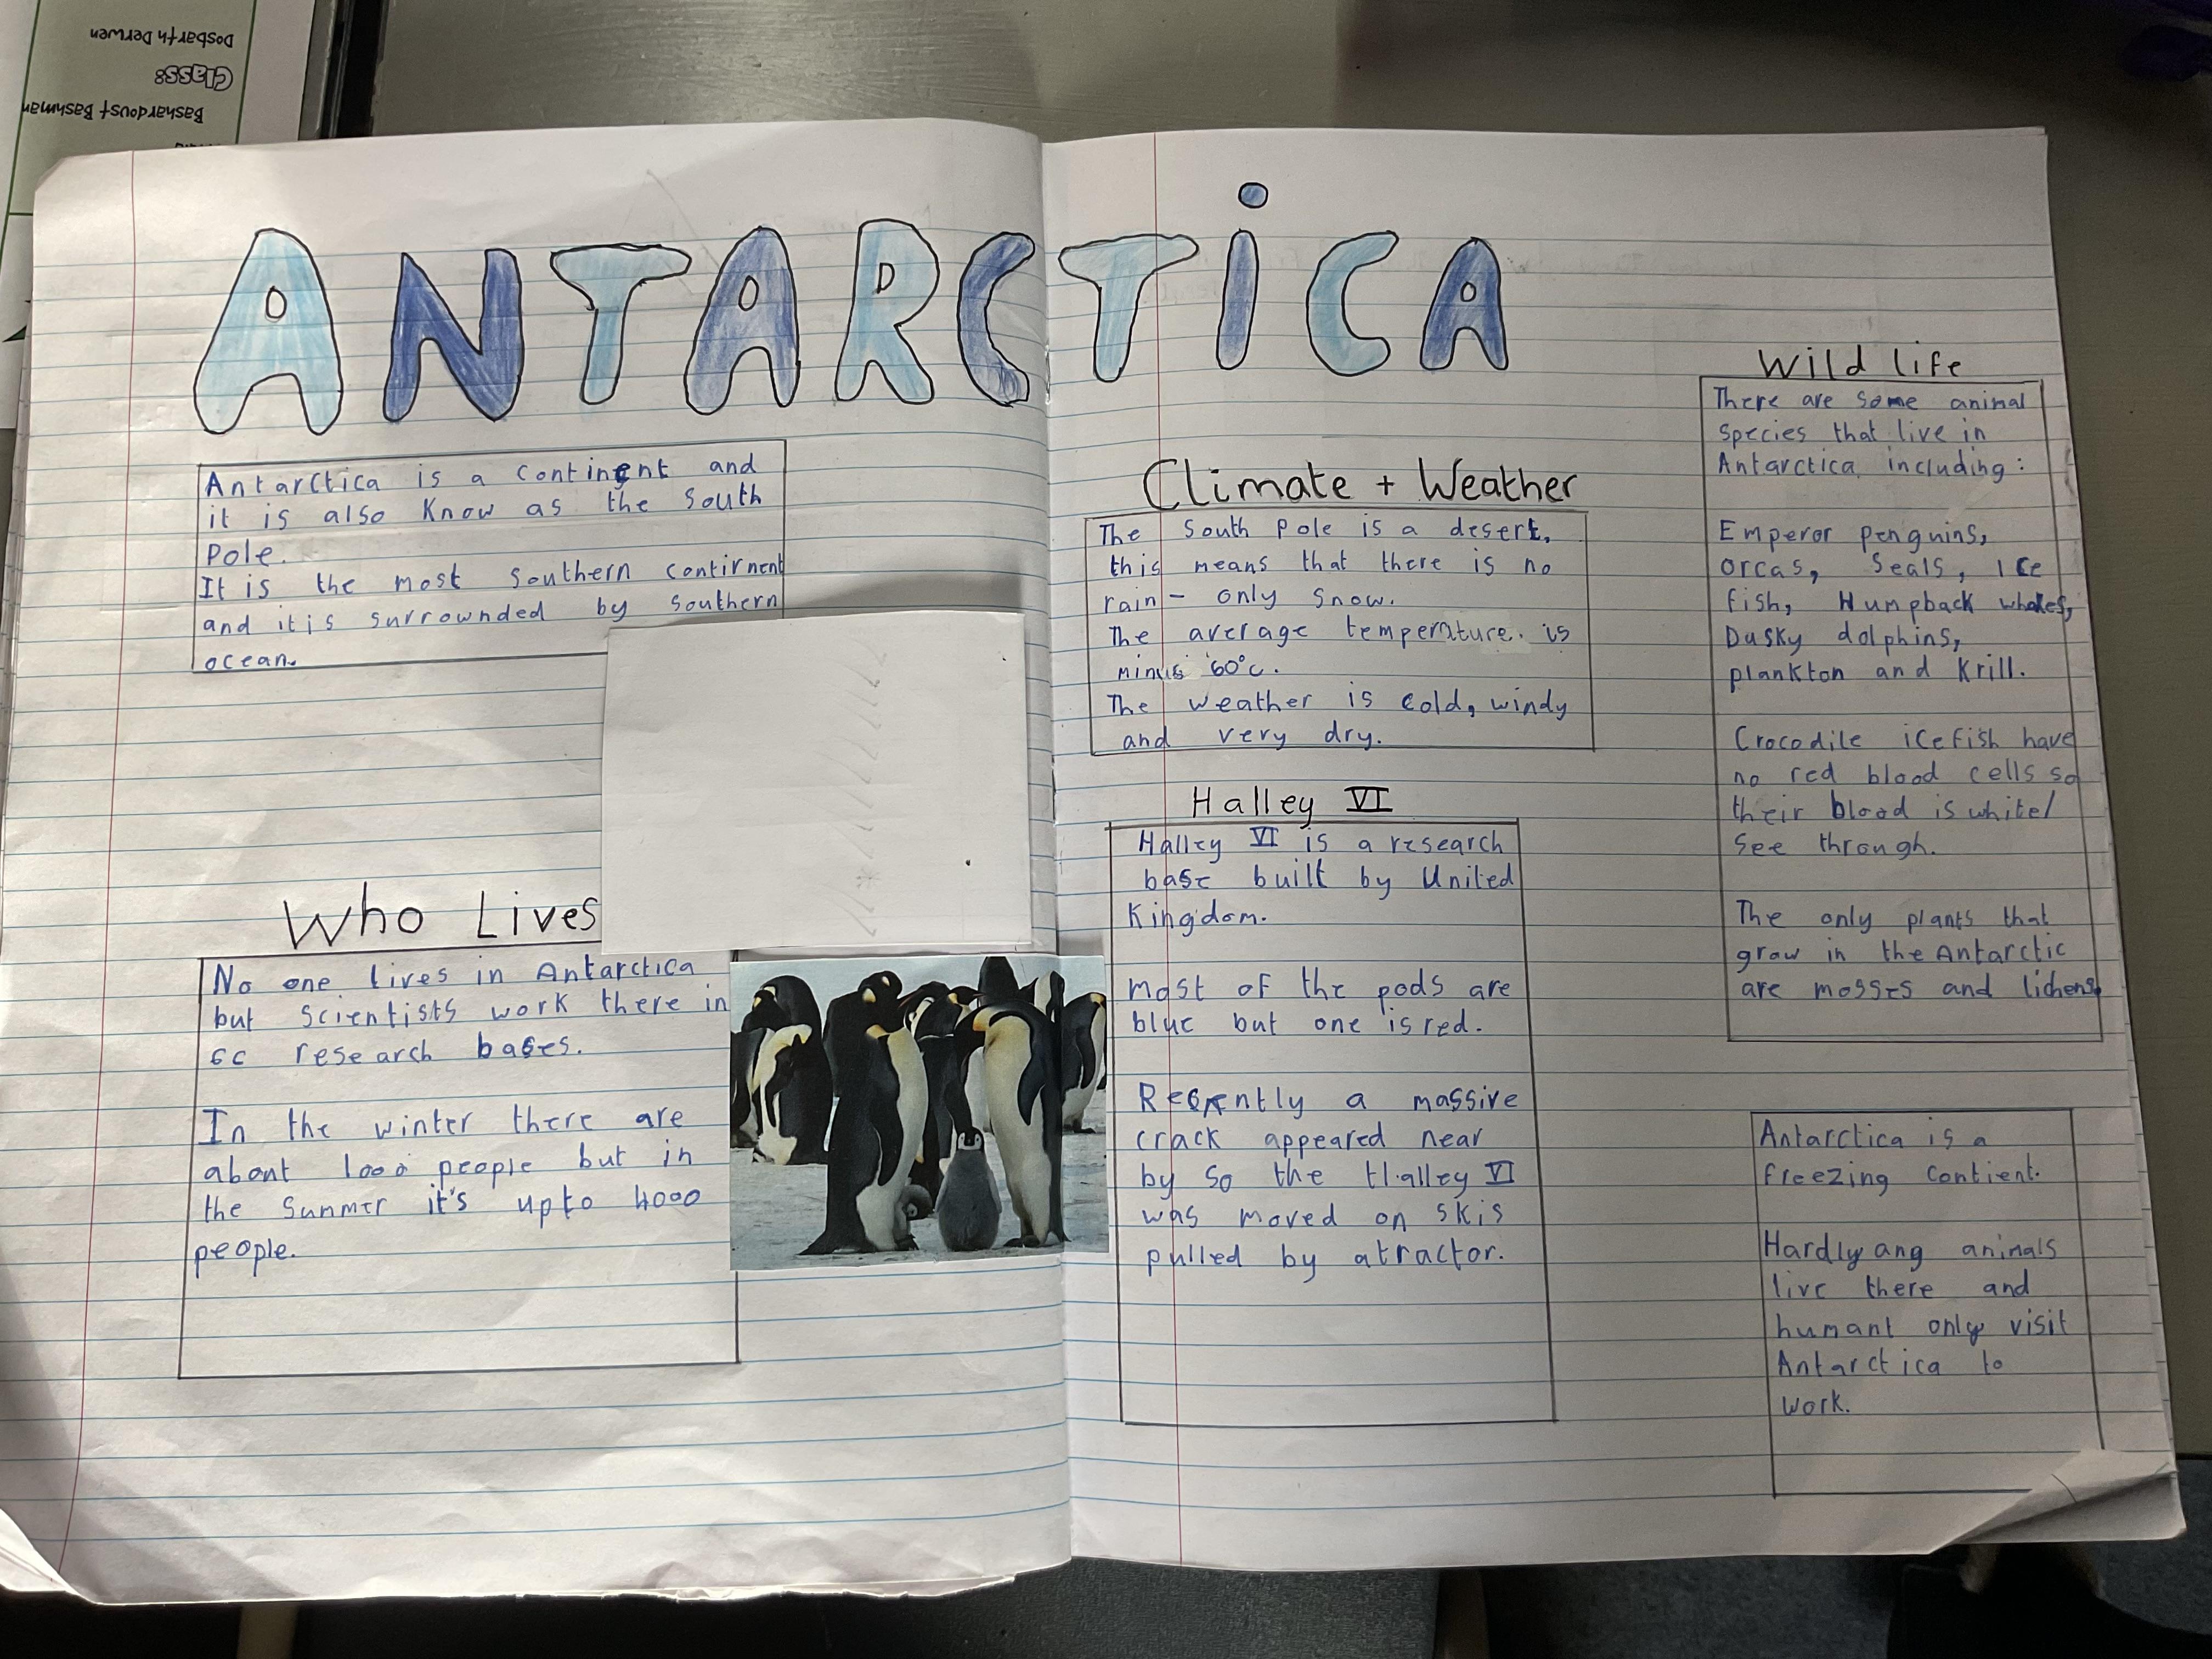 Dosbarth Derwen
Class:
Bashardoust Bashman
ANTARCTiCA
Antarctica is a continent and
it is also Know as the South
Pole.
It is the most Southern contirnent
and it is surrownded by Southern
ocean.
Who Lives
No one lives in Antarctica
but Scientists work there in
research bases.
In the winter there are
about 1000 people but in
the Summer it's upto 4000
people.
Climate + Weather
The South Pole is a desert,
this means that there is no
rain - only snow.
The average temperature. is
minus 60°c.
The weather is cold, windy
and very dry.
Halley VI
Halley VI is a research
base built by United
Kingdom.
most of the pods are
blue but one is red.
Recently a massive
crack appeared near
by so the Halley VI
was moved on skis
pulled by atractor.
Wild life
There are some animal
species that live in
Antarctica including:
Emperor penguins,
orcas, Seals, Ice
fish, Humpback whales,
Dusky dolphins,
plankton and Krill.
Crocodile icefish have
no red blood cells so
their blood is white/
see through.
The only plants that
grow in the Antarctic
are mosses and lichens.
Antarctica is a
freezing contient.
Hardly any animals
live there and
humant only visit
Antarctica to
work.